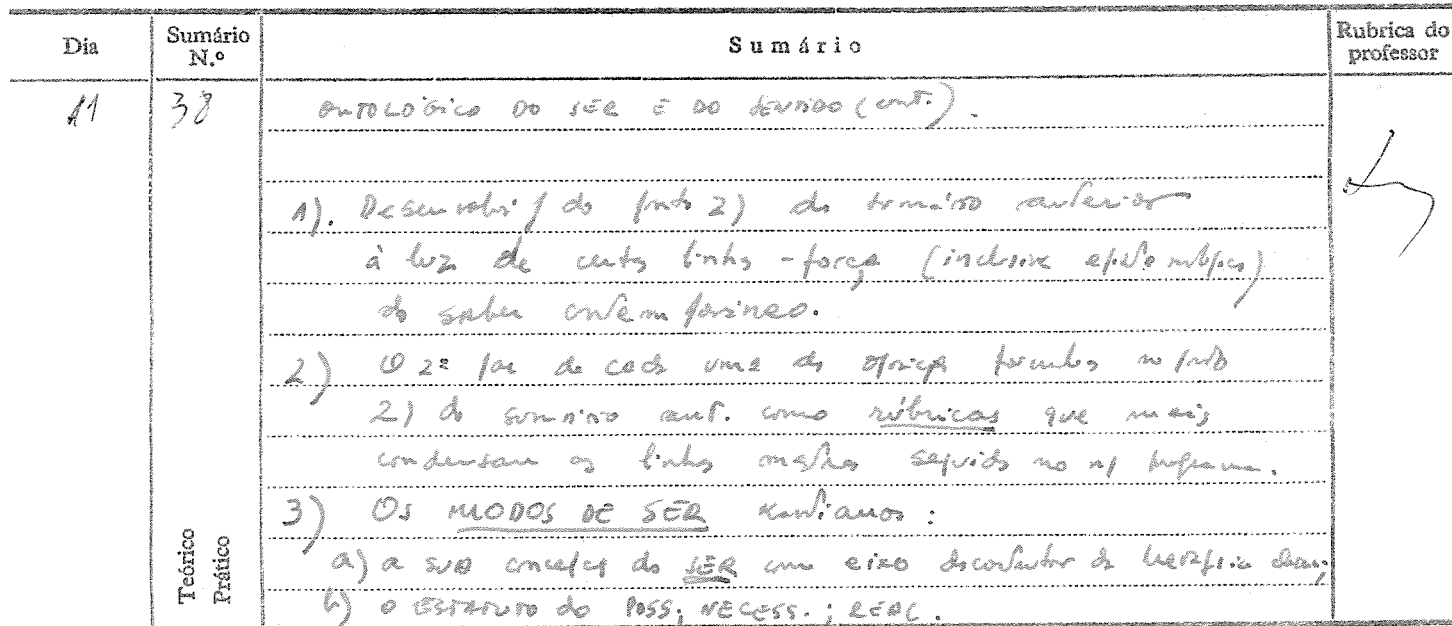 Dia
Sumário N.º
Sumário
Rubrica do professor
11
38
ONTOLÓGICO DO SER E DO SENTIDO (cont.).
1). Desenvolvi/ do ponto 2) do sumário anterior
à luz de certas linhas-força (inclusive epistemológicas)
do saber contemporâneo.
2) O 2º par de cada uma das formuladas no ponto
2) do sumário ant. como rúbricas que mais
condensam as linhas mestras seguidas no n/ programa.
3) Os MODOS DE SER Kantianos:
a) a sua concepção do SER como eixo da
b) o ESTATUTO do POSS.; NECESS.; REAL.
Teórico
Prático